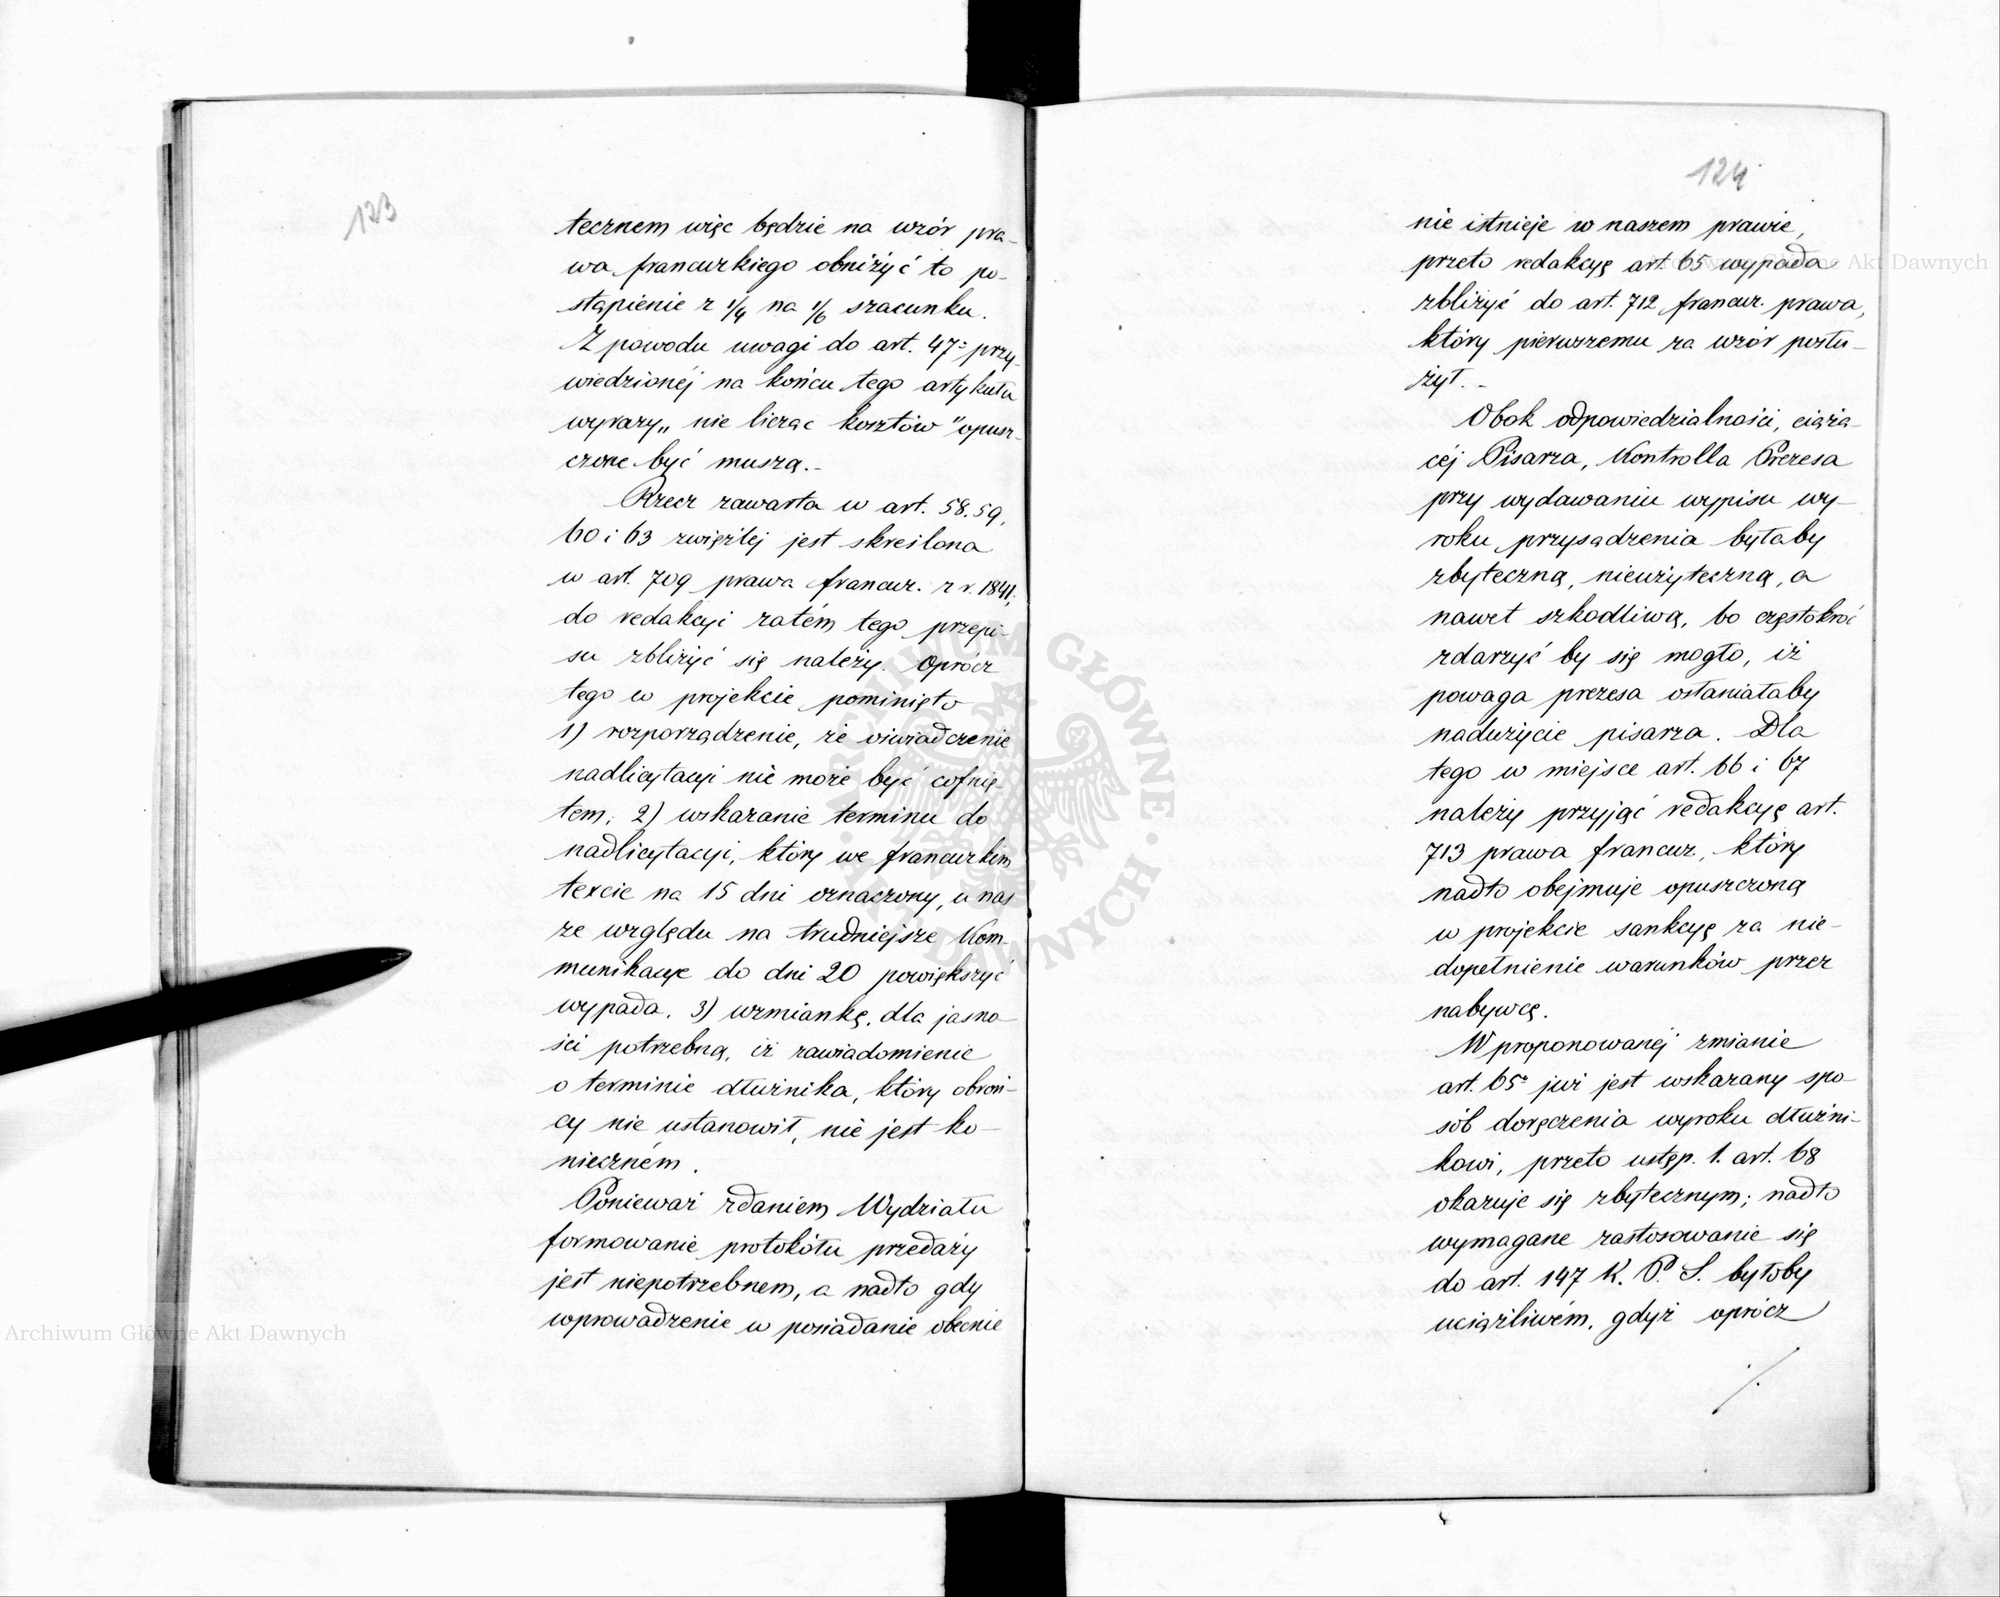 123
tecznem więc będzie na wzór pra-
wa francuzkiego obniżyć to po-
stąpienie z 1/4 na 1/6 szacunku.
Z powodu uwagi do art. 47º przy-
wiedzionéj na końcu tego artykułu
wyrazy „nie licząc kosztów" opusz-
czone być muszą.-
Rzecz zawarta w art. 58. 59.
60 i 63 zwięźlej jest skreślona
w art. 709 prawa francuz. z r. 1841,
do redakcyi zatém tego przepi-
su zbliżyć się należy. Oprócz
tego w projekcie pominięto
1) rozporządzenie, że oświadczenie
nadlicytacyi nie może być cofnię-
tem; 2) wskazanie terminu do
nadlicytacyi, który we francuzkim
texcie na 15 dni oznaczony, u nas
ze względu na trudniejsze kom-
munikacye do dni 20 powiększyć
wypada. 3) wzmiankę, dla jasno-
ści potrzebną, iż zawiadomienie
o terminie dłużnika, który obroń-
cy nie ustanowił, nie jest ko-
nieczném.
Ponieważ zdaniem Wydziału
formowanie protokółu przedaży
jest niepotrzebnem, a nadto gdy
wprowadzenie w posiadanie obecnie
124
nie istnieje w naszem prawie,
przeto redakcyę art. 65 wypada
zbliżyć do art. 712 francuz. prawa,
który pierwszemu za wzór posłu-
żył.-
Obok odpowiedzialności, ciążą-
céj Pisarza, Kontrolla Prezesa
przy wydawaniu wypisu wy-
roku przysądzenia byłaby
zbyteczną, nieużyteczną, a
nawet szkodliwą, bo częstokroć
zdarzyć by się mogło, iż
powaga prezesa osłaniałaby
nadużycie pisarza. Dla
tego w miejsce art. 66 i 67
należy przyjąć redakcyę art.
713 prawa francuz., który
nadto obejmuje opuszczoną
w projekcie sankcyę za nie-
dopełnienie warunków przez
nabywcę.
W proponowanéj zmianie
art. 65º już jest wskazany spo-
sób doręczenia wyroku dłużni-
kowi, przeto ustęp. 1. art. 68
okazuje się zbytecznym; nadto
wymagane zastosowanie się
do art. 147 K. P. S. byłoby
uciążliwém, gdyż oprócz
./.
ARCHIWUM GŁÓWNE AKT DAWNYCH
Archiwum Główne Akt Dawnych
Archiwum Główne Akt Dawnych